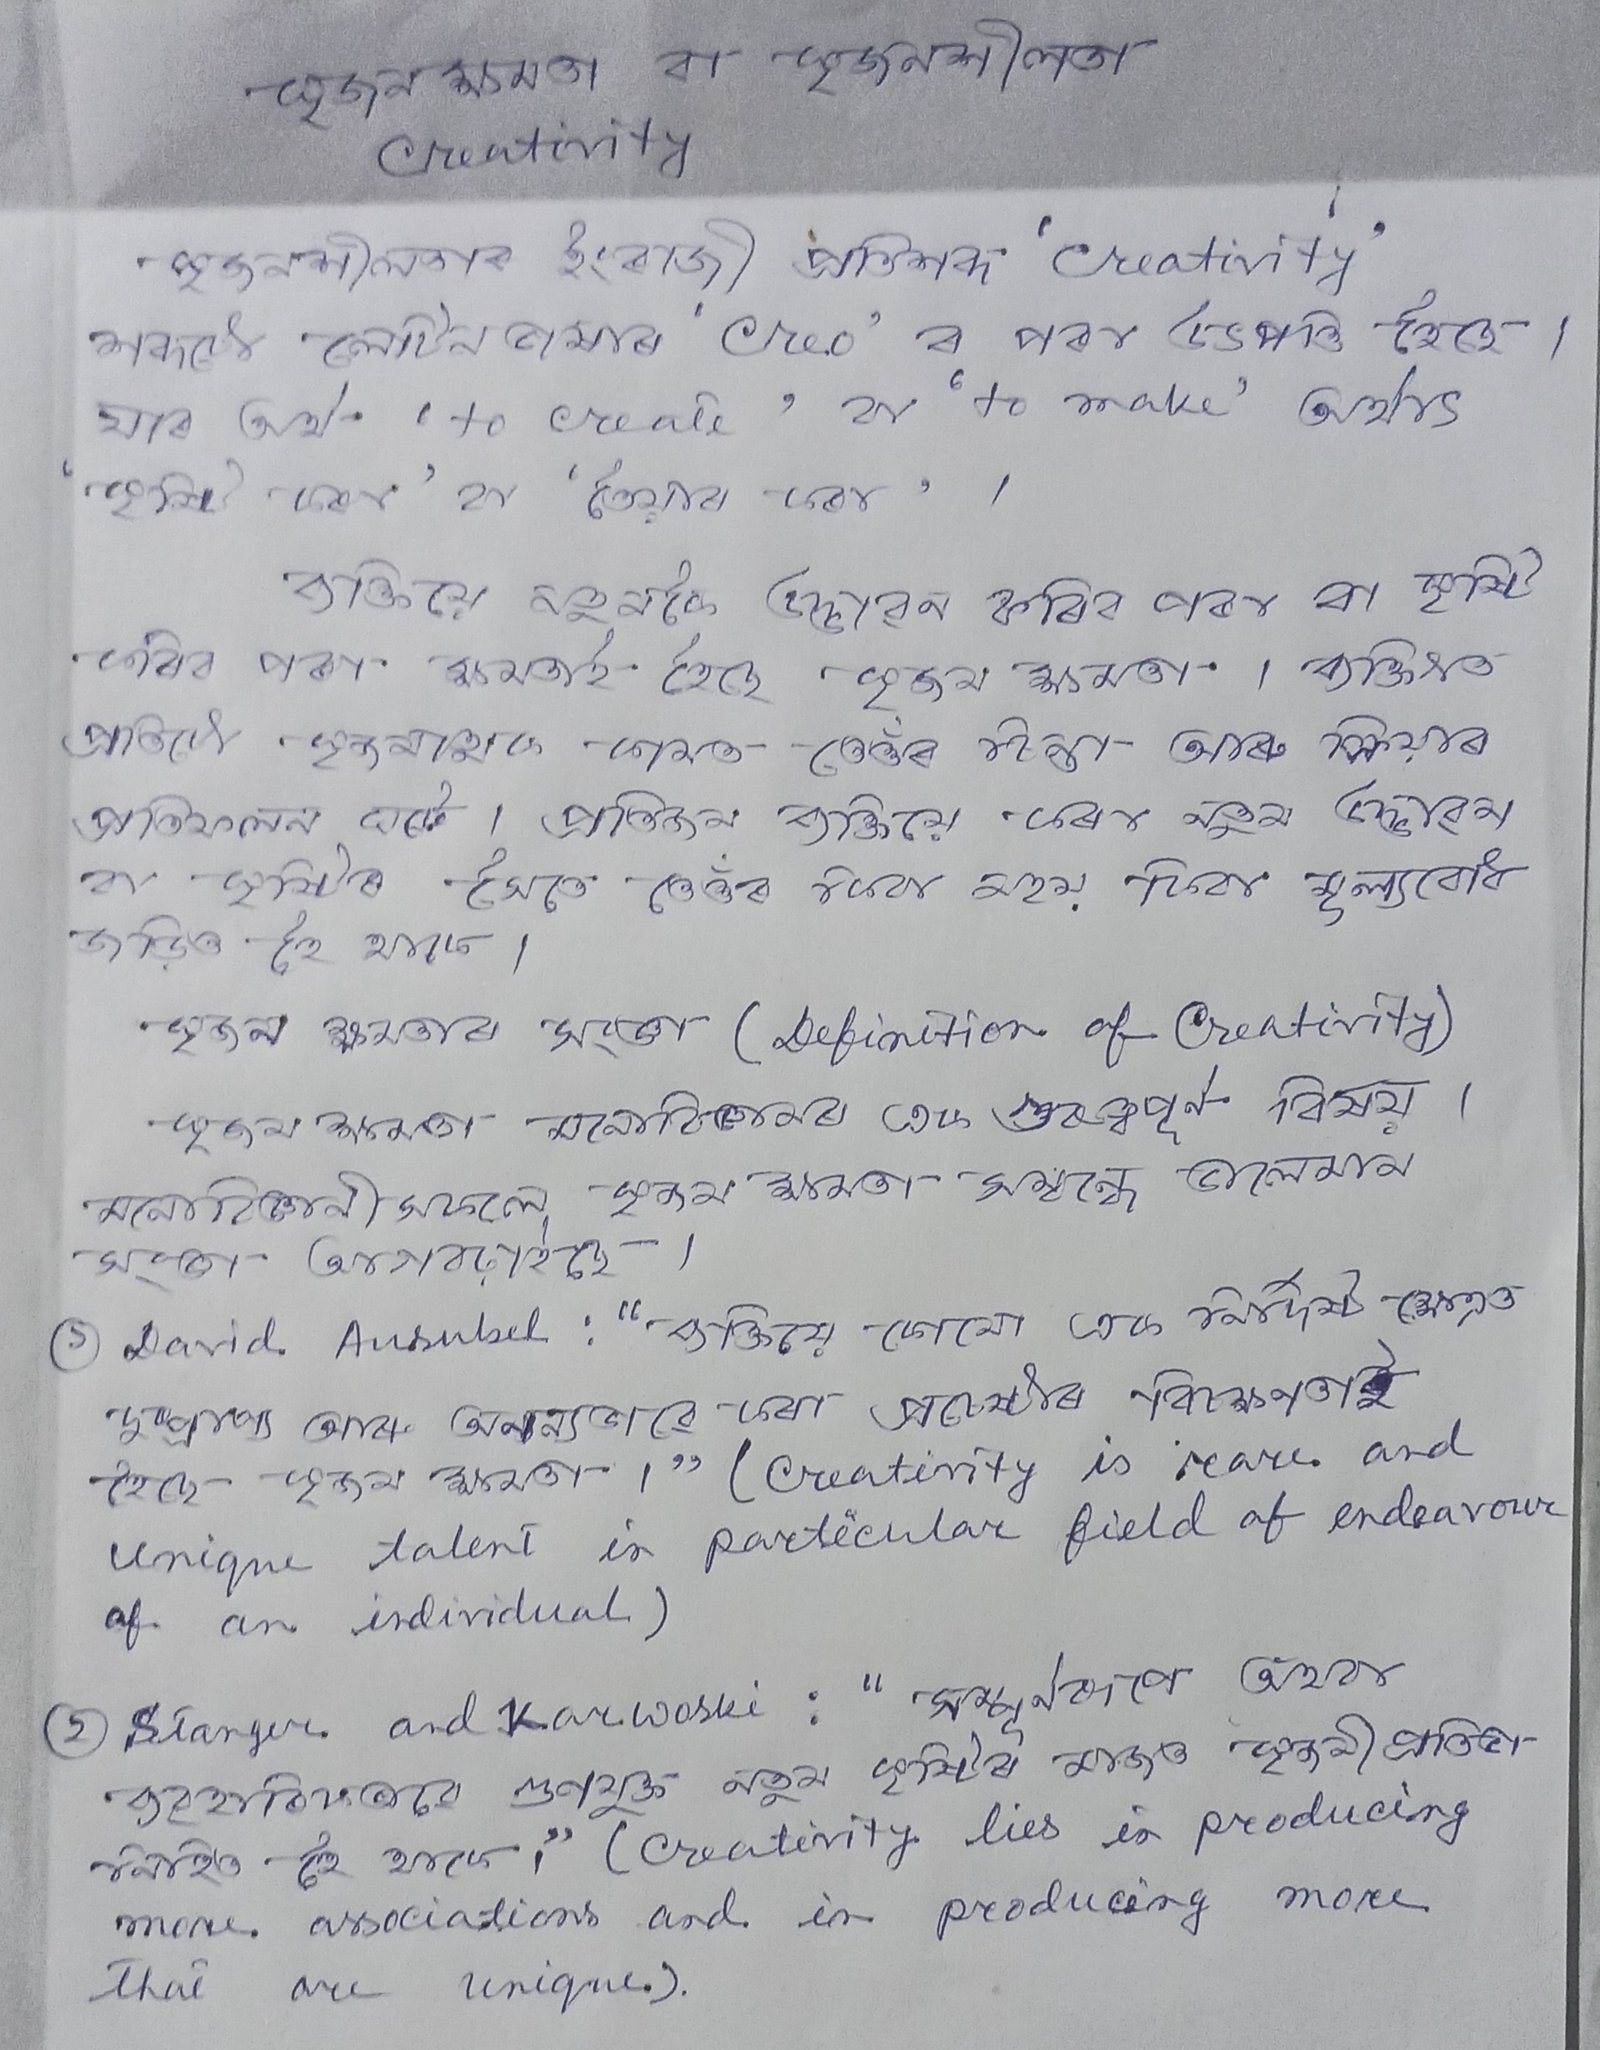 সৃজনক্ষমতা বা সৃজনশীলতা
Creativity
সৃজনশীলতাৰ ইংৰাজী প্ৰতিশব্দ 'Creativity'
শব্দটো লেটিন ভাষাৰ 'Creo' ৰ পৰা উৎপত্তি হৈছে ।
যাৰ অৰ্থ 'to create' বা 'to make' অৰ্থাৎ
'সৃষ্টি কৰা' বা 'তৈয়াৰ কৰা' ।
ব্যক্তিয়ে নতুনকৈ উদ্ভাৱন কৰিব পৰা বা সৃষ্টি
কৰিব পৰা ক্ষমতাই হৈছে সৃজন ক্ষমতা । ব্যক্তিগত
প্ৰতিটো সৃজনাত্মক কামত তেওঁৰ চিন্তা আৰু ক্ৰিয়াৰ
প্ৰতিফলন ঘটে । প্ৰতিজন ব্যক্তিয়ে কৰা নতুন উদ্ভাৱন
বা সৃষ্টিৰ সৈতে তেওঁৰ কিবা নহয় কিবা মূল্যবোধ
জড়িত হৈ থাকে ।
সৃজন ক্ষমতাৰ সংজ্ঞা (Definition of Creativity)
সৃজন ক্ষমতা মনোবিজ্ঞানৰ এক গুৰুত্বপূৰ্ণ বিষয় ।
মনোবিজ্ঞানীসকলে সৃজন ক্ষমতা সম্বন্ধে ভালেমান
সংজ্ঞা আগবঢ়াইছে ।
① David Ausubel : "ব্যক্তিয়ে কোনো এক নিৰ্দিষ্ট ক্ষেত্ৰত
দুষ্প্ৰাপ্য আৰু অনন্যভাৱে কৰা প্ৰচেষ্টাৰ বিচক্ষণতাই
হৈছে সৃজন ক্ষমতা ।" (Creativity is rare and
unique talent in particular field of endeavour
of an individual)
② Stanger and Karwoski : "সম্পূৰ্ণৰূপে অথবা
ব্যৱহাৰিকভাৱে গুণযুক্ত নতুন সৃষ্টিৰ মাজত সৃজনী প্ৰতিভা
নিহিত হৈ থাকে ।" (Creativity lies in producing
more associations and in producing more
that are unique).